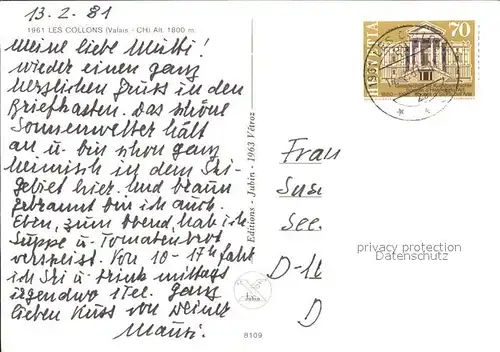 13.2.81
1961 LES COLLONS (Valais - CH) Alt. 1800 m.
Meine liebe Mutti!
Wieder einen ganz
herzlichen Gruss in den
Briefkasten. Das schöne
Sonnenwetter hält
an u. bin schon ganz
heimisch in dem Ski-
gebiet hier. Und braun
gebrannt bin ich auch.
Eben, zum Abend, hab ich
Suppe u. Tomatenbrot
verspeist. Von 10 - 17h fahr
ich Ski u. trink mittags
irgendwo 1 Tee. Ganz
lieben Kuss von Deiner
Mausi.
Editions - Jubin - 1963 Vétroz
Jubin
8109
HELVETIA 70
1961
Frau
See
D-
D
privacy protection
Datenschutz